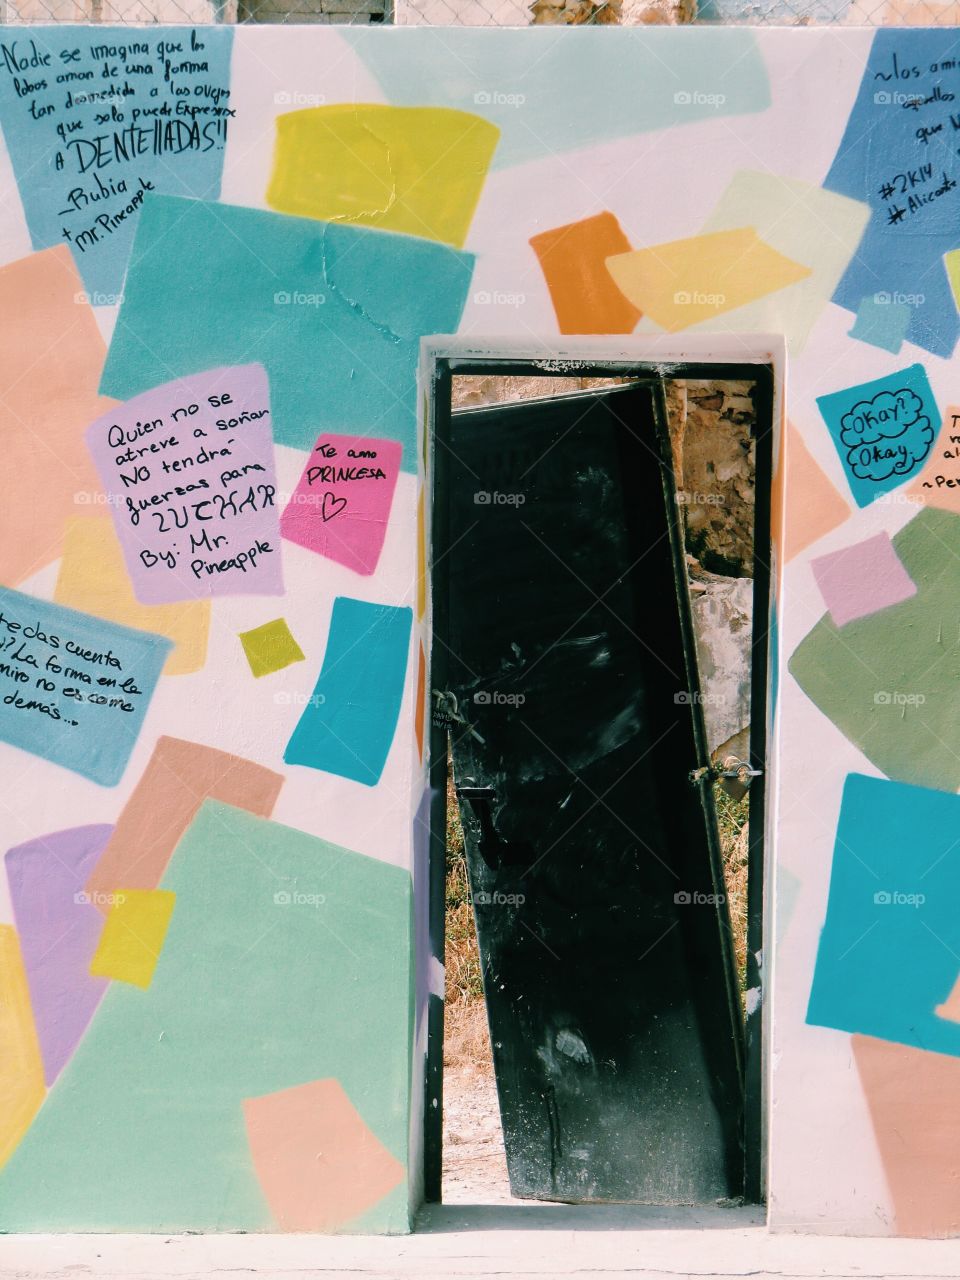 Nadie se imagina que los
lobos aman de una forma
tan desmedida a las ovejas
que solo puede Expresarse
A DENTEllADAS!!
_Rubia
+ Mr. Pineapple
~los ami
que
#2K14
#Alicante
Quien no se
atreve a soñar
NO tendrá
fuerzas para
LUCHAR
By: Mr.
Pineapple
Te amo
PRINCESA
♡
Okay?
Okay
~Per
te das cuenta
? La forma en le
miro no es como
demás...